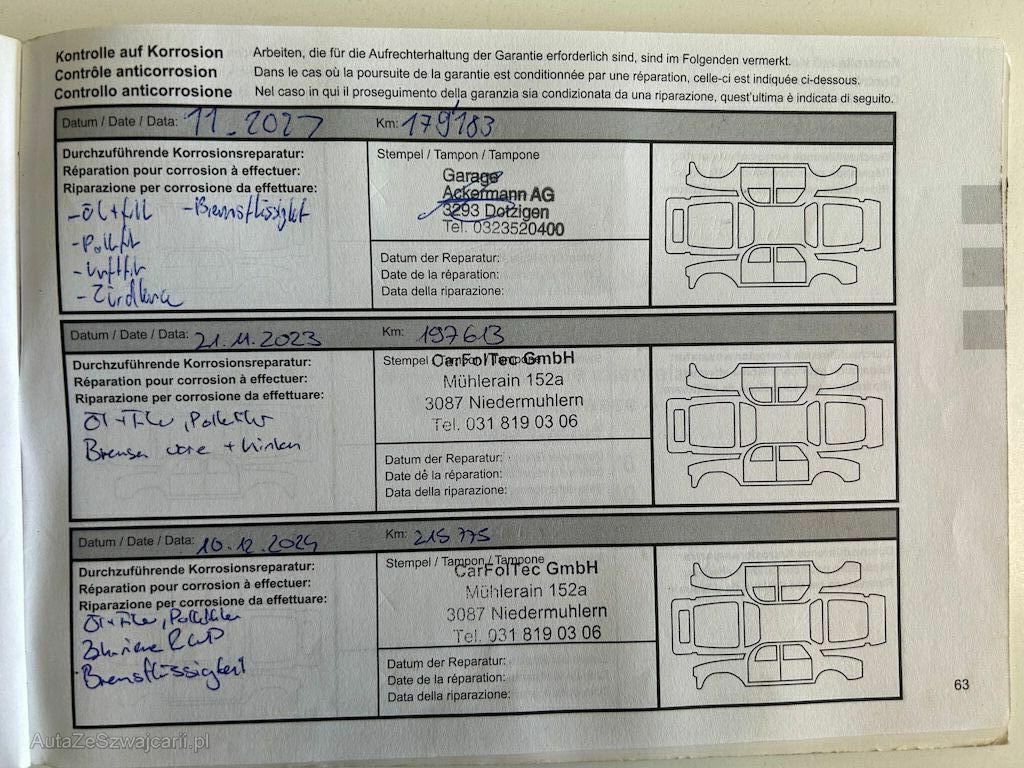 Kontrolle auf Korrosion Arbeiten, die für die Aufrechterhaltung der Garantie erforderlich sind, sind im Folgenden vermerkt.
Contrôle anticorrosion Dans le cas où la poursuite de la garantie est conditionnée par une réparation, celle-ci est indiquée ci-dessous.
Controllo anticorrosione Nel caso in qui il proseguimento della garanzia sia condizionata da una riparazione, quest'ultima è indicata di seguito.
Datum / Date / Data: Km: 179'183
Durchzuführende Korrosionsreparatur:
Réparation pour corrosion à effectuer:
Riparazione per corrosione da effettuare:
- Bremsflüssigkeit
Stempel / Tampon / Tampone
Garage
Ackermann AG
3293 Dotzigen
Tel. 0323520400
Datum der Reparatur:
Date de la réparation:
Data della riparazione:
Datum / Date / Data: 21.11.2023 Km: 197613
Durchzuführende Korrosionsreparatur:
Réparation pour corrosion à effectuer:
Riparazione per corrosione da effettuare:
Bremsen vorne + hinten
Stempel / Tampon / Tampone
CarFolTec GmbH
Mühlerain 152a
3087 Niedermuhlern
Tel. 031 819 03 06
Datum der Reparatur:
Date de la réparation:
Data della riparazione:
Datum / Date / Data: 10.12.2024 Km: 215775
Durchzuführende Korrosionsreparatur:
Réparation pour corrosion à effectuer:
Riparazione per corrosione da effettuare:
Bremsflüssigkeit
Stempel / Tampon / Tampone
CarFolTec GmbH
Mühlerain 152a
3087 Niedermuhlern
Tel. 031 819 03 06
Datum der Reparatur:
Date de la réparation:
Data della riparazione:
63
AutaZeSzwajcarii.pl